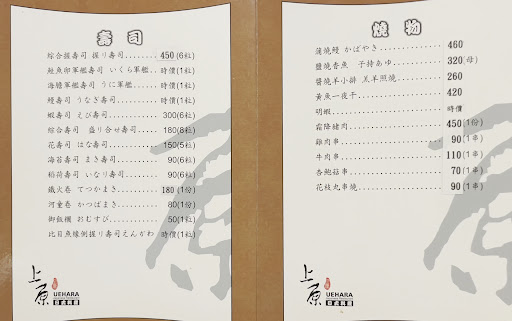 壽司
綜合握壽司 握り壽司 450(6粒)
鮭魚卵軍艦壽司 いくら軍艦.. 時價(1粒)
海膽軍艦壽司 うに軍艦........ 時價(1粒)
鰻壽司 うなぎ壽司............... 時價(1粒)
蝦壽司 えび壽司.................. 300(6粒)
綜合壽司 盛り合せ壽司........ 180(8粒)
花壽司 はな壽司.................. 150(5粒)
海苔壽司 まき壽司............... 90(6粒)
稻荷壽司 いなり壽司............ 90(6粒)
鐵火卷 てつかまき............... 180(1份)
河童卷 かつぱまき............... 80(1份)
御飯糰 おむすび.................. 50(1粒)
比目魚緣側握り壽司えんがわ 時價(1粒)
上原
UEHARA
燒物
蒲燒鰻 かばやき........................ 460
鹽燒香魚 子持あゆ.................. 320(母)
醬燒羊小排 羔羊照燒............... 260
黃魚一夜干.............................. 420
明蝦....................................... 時價
霜降豬肉................................. 450(1份)
雞肉串.................................... 90(1串)
牛肉串.................................... 110(1串)
杏鮑菇串................................. 70(1串)
花枝丸串燒.............................. 90(1串)
上原
UEHARA